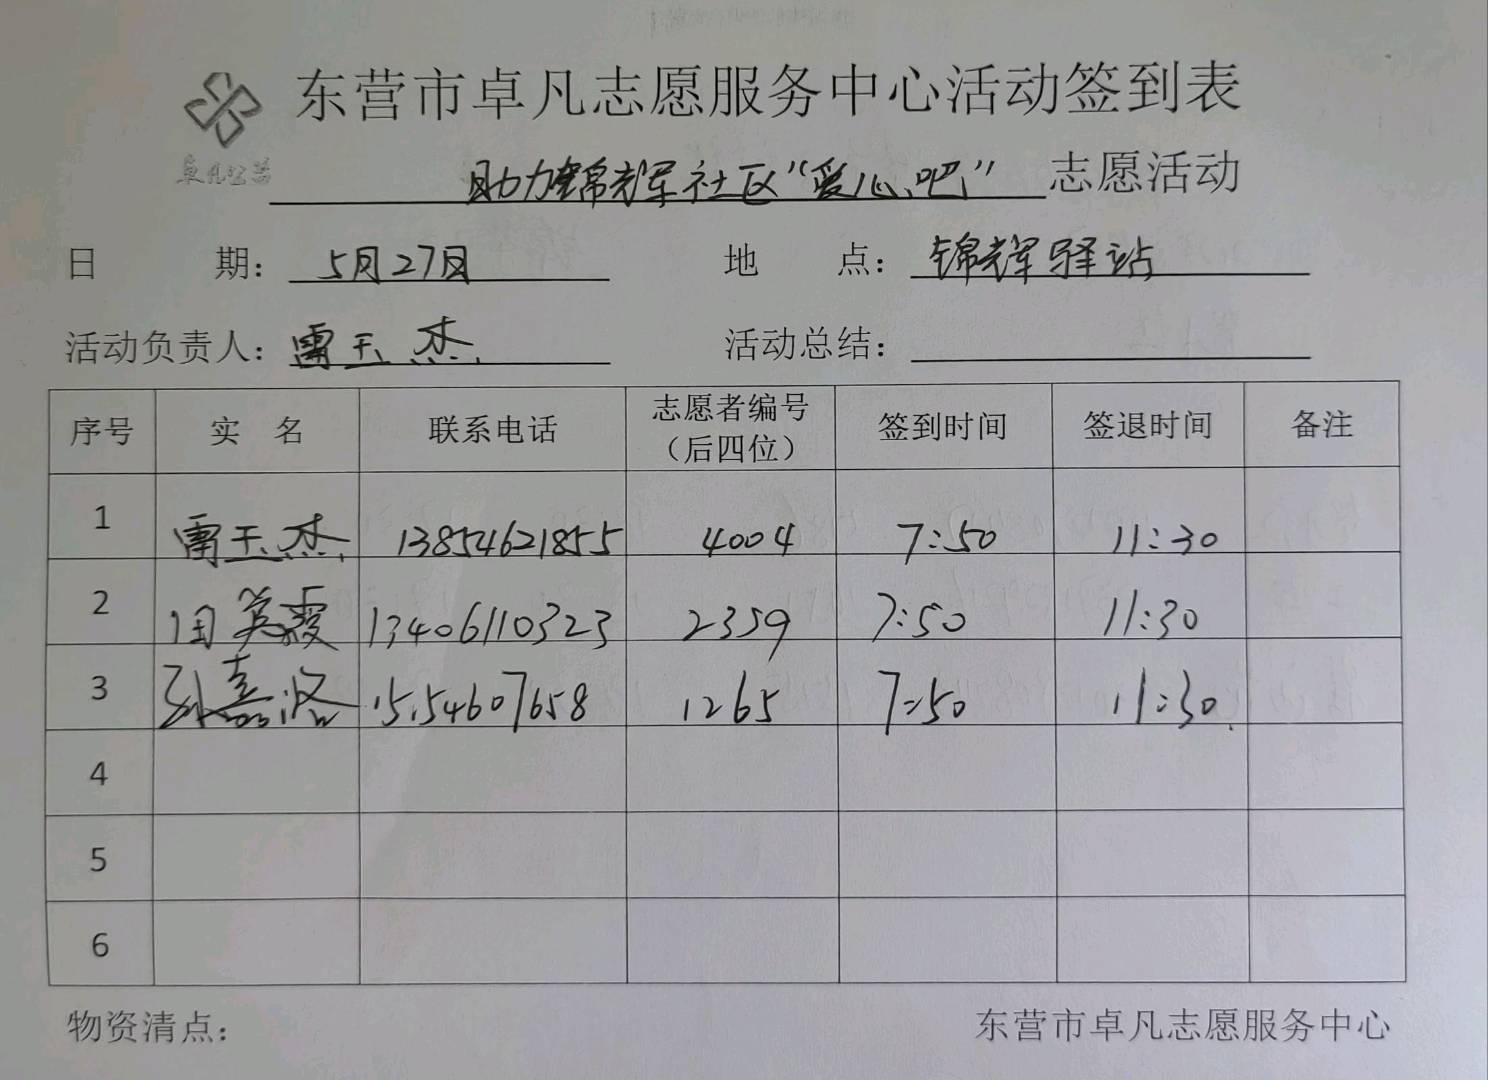 东营市卓凡志愿服务中心活动签到表
卓凡公益
助力锦辉社区“爱心吧”志愿活动
日 期: 5月27日 地 点: 锦辉驿站
活动负责人: 雷玉杰 活动总结:
序号 实 名 联系电话 志愿者编号(后四位) 签到时间 签退时间 备注
1 雷玉杰 13854621855 4004 7:50 11:30
2 周英霞 13406110323 2359 7:50 11:30
3 15154607658 1265 7:50 11:30
4
5
6
物资清点: 东营市卓凡志愿服务中心